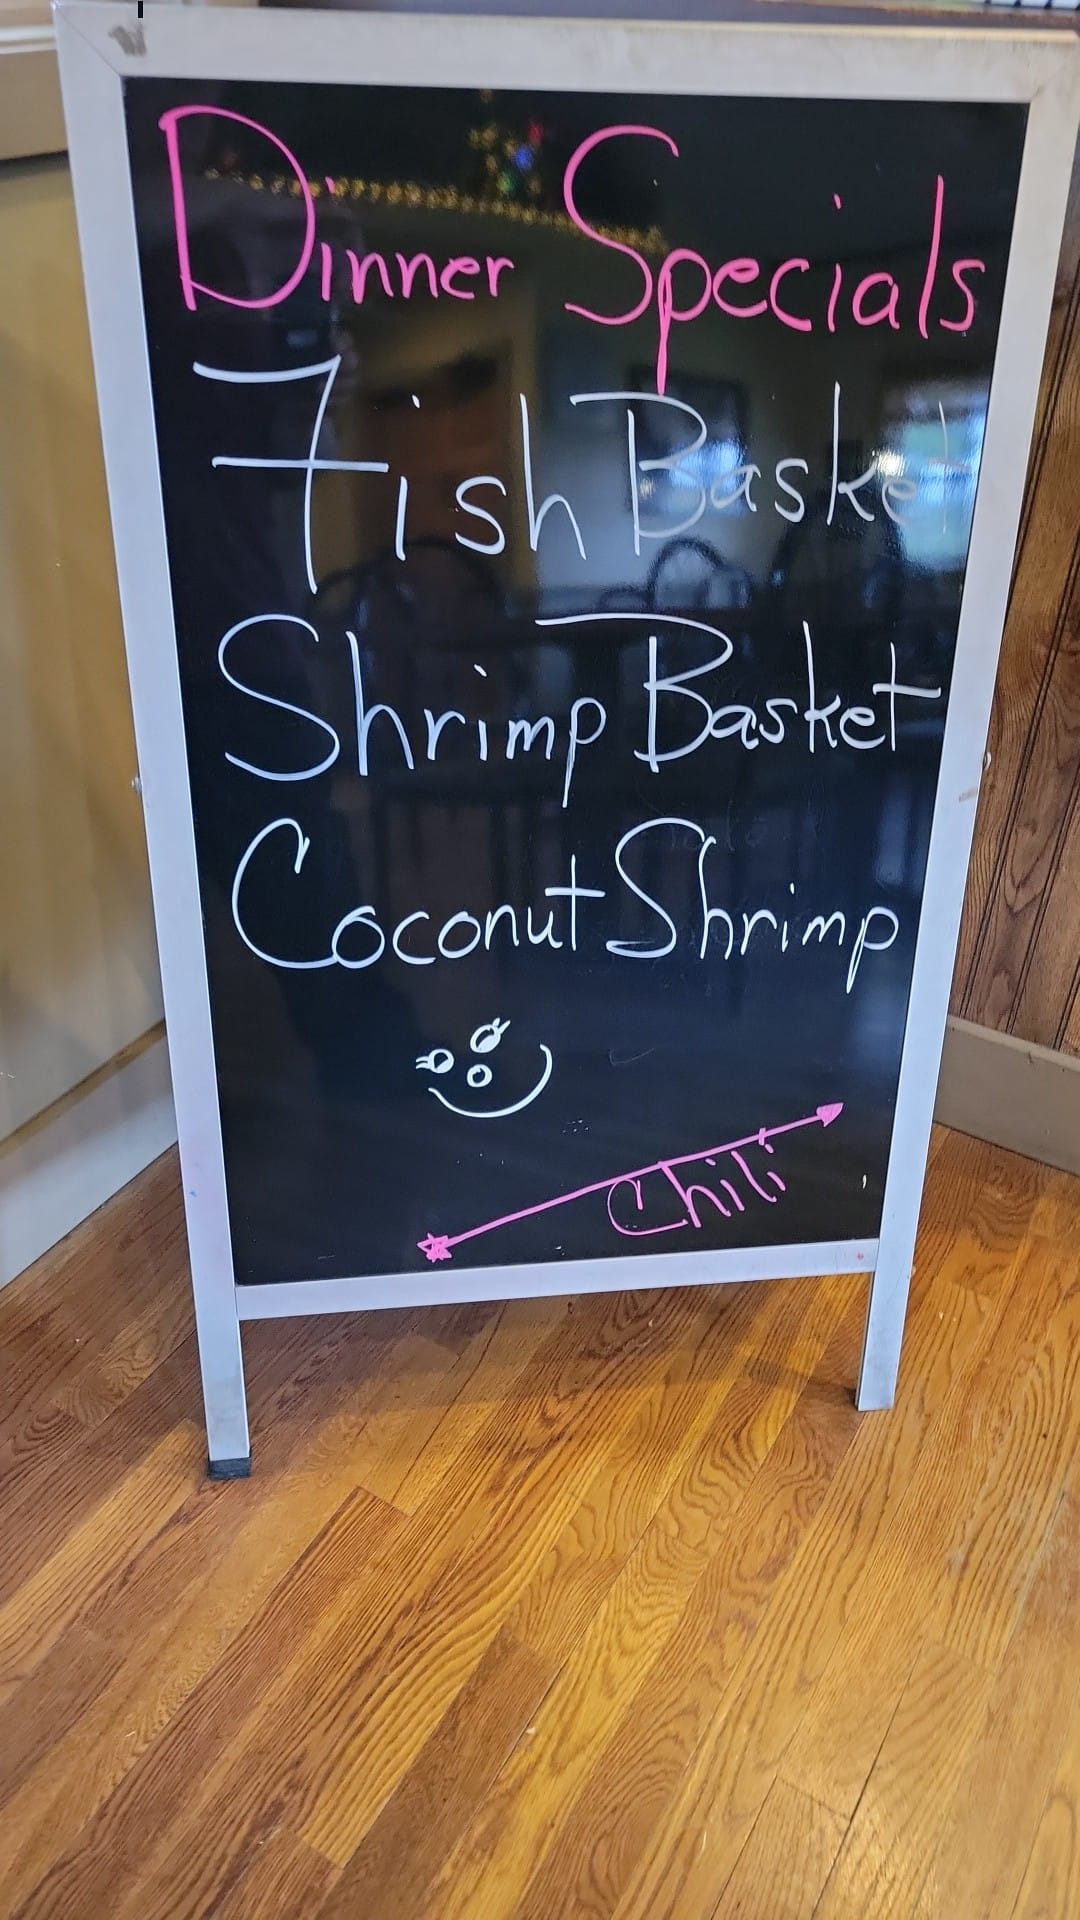 Dinner Specials
Fish Basket
Shrimp Basket
Coconut Shrimp
Chili